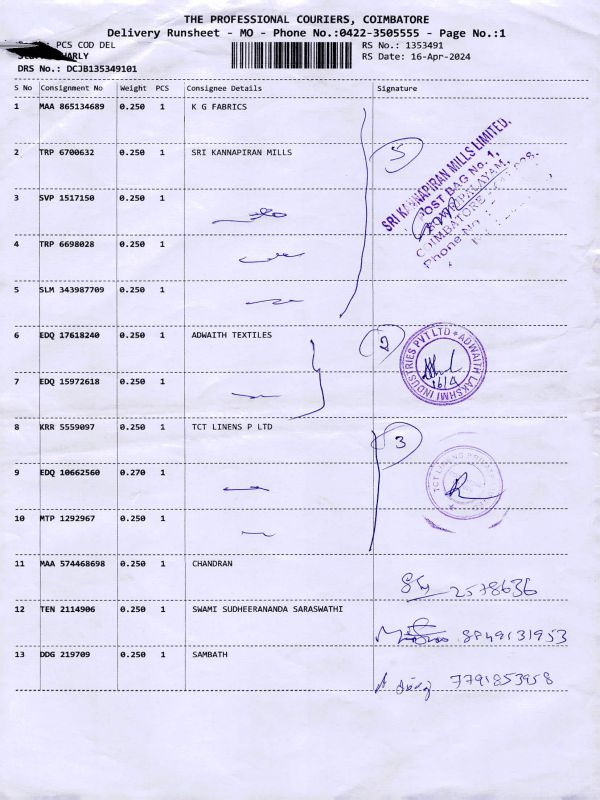 THE PROFESSIONAL COURIERS, COIMBATORE
Delivery Runsheet - MO - Phone No.:0422-3505555 - Page No.:1
PCS COD DEL
RS No.: 1353491
RS Date: 16-Apr-2024
DRS No.: DCJB135349101
S No Consignment No Weight PCS Consignee Details Signature
1 MAA 865134689 0.250 1 K G FABRICS
2 TRP 6700632 0.250 1 SRI KANNAPIRAN MILLS
5
SRI KANNAPIRAN MILLS LIMITED.
POST BAG No. 1,
COIMBATORE
Phone No.
3 SVP 1517150 0.250 1
4 TRP 6698028 0.250 1
5 SLM 343987709 0.250 1
6 EDQ 17618240 0.250 1 ADWAITH TEXTILES
2
ADWAITH LAKSHMI INDUSTRIES PVT LTD
16/4
7 EDQ 15972618 0.250 1
8 KRR 5559097 0.250 1 TCT LINENS P LTD
3
9 EDQ 10662560 0.270 1
10 MTP 1292967 0.250 1
11 MAA 574468698 0.250 1 CHANDRAN
2578636
12 TEN 2114906 0.250 1 SWAMI SUDHEERANANDA SARASWATHI
8849131953
13 DDG 219709 0.250 1 SAMBATH
7791853958